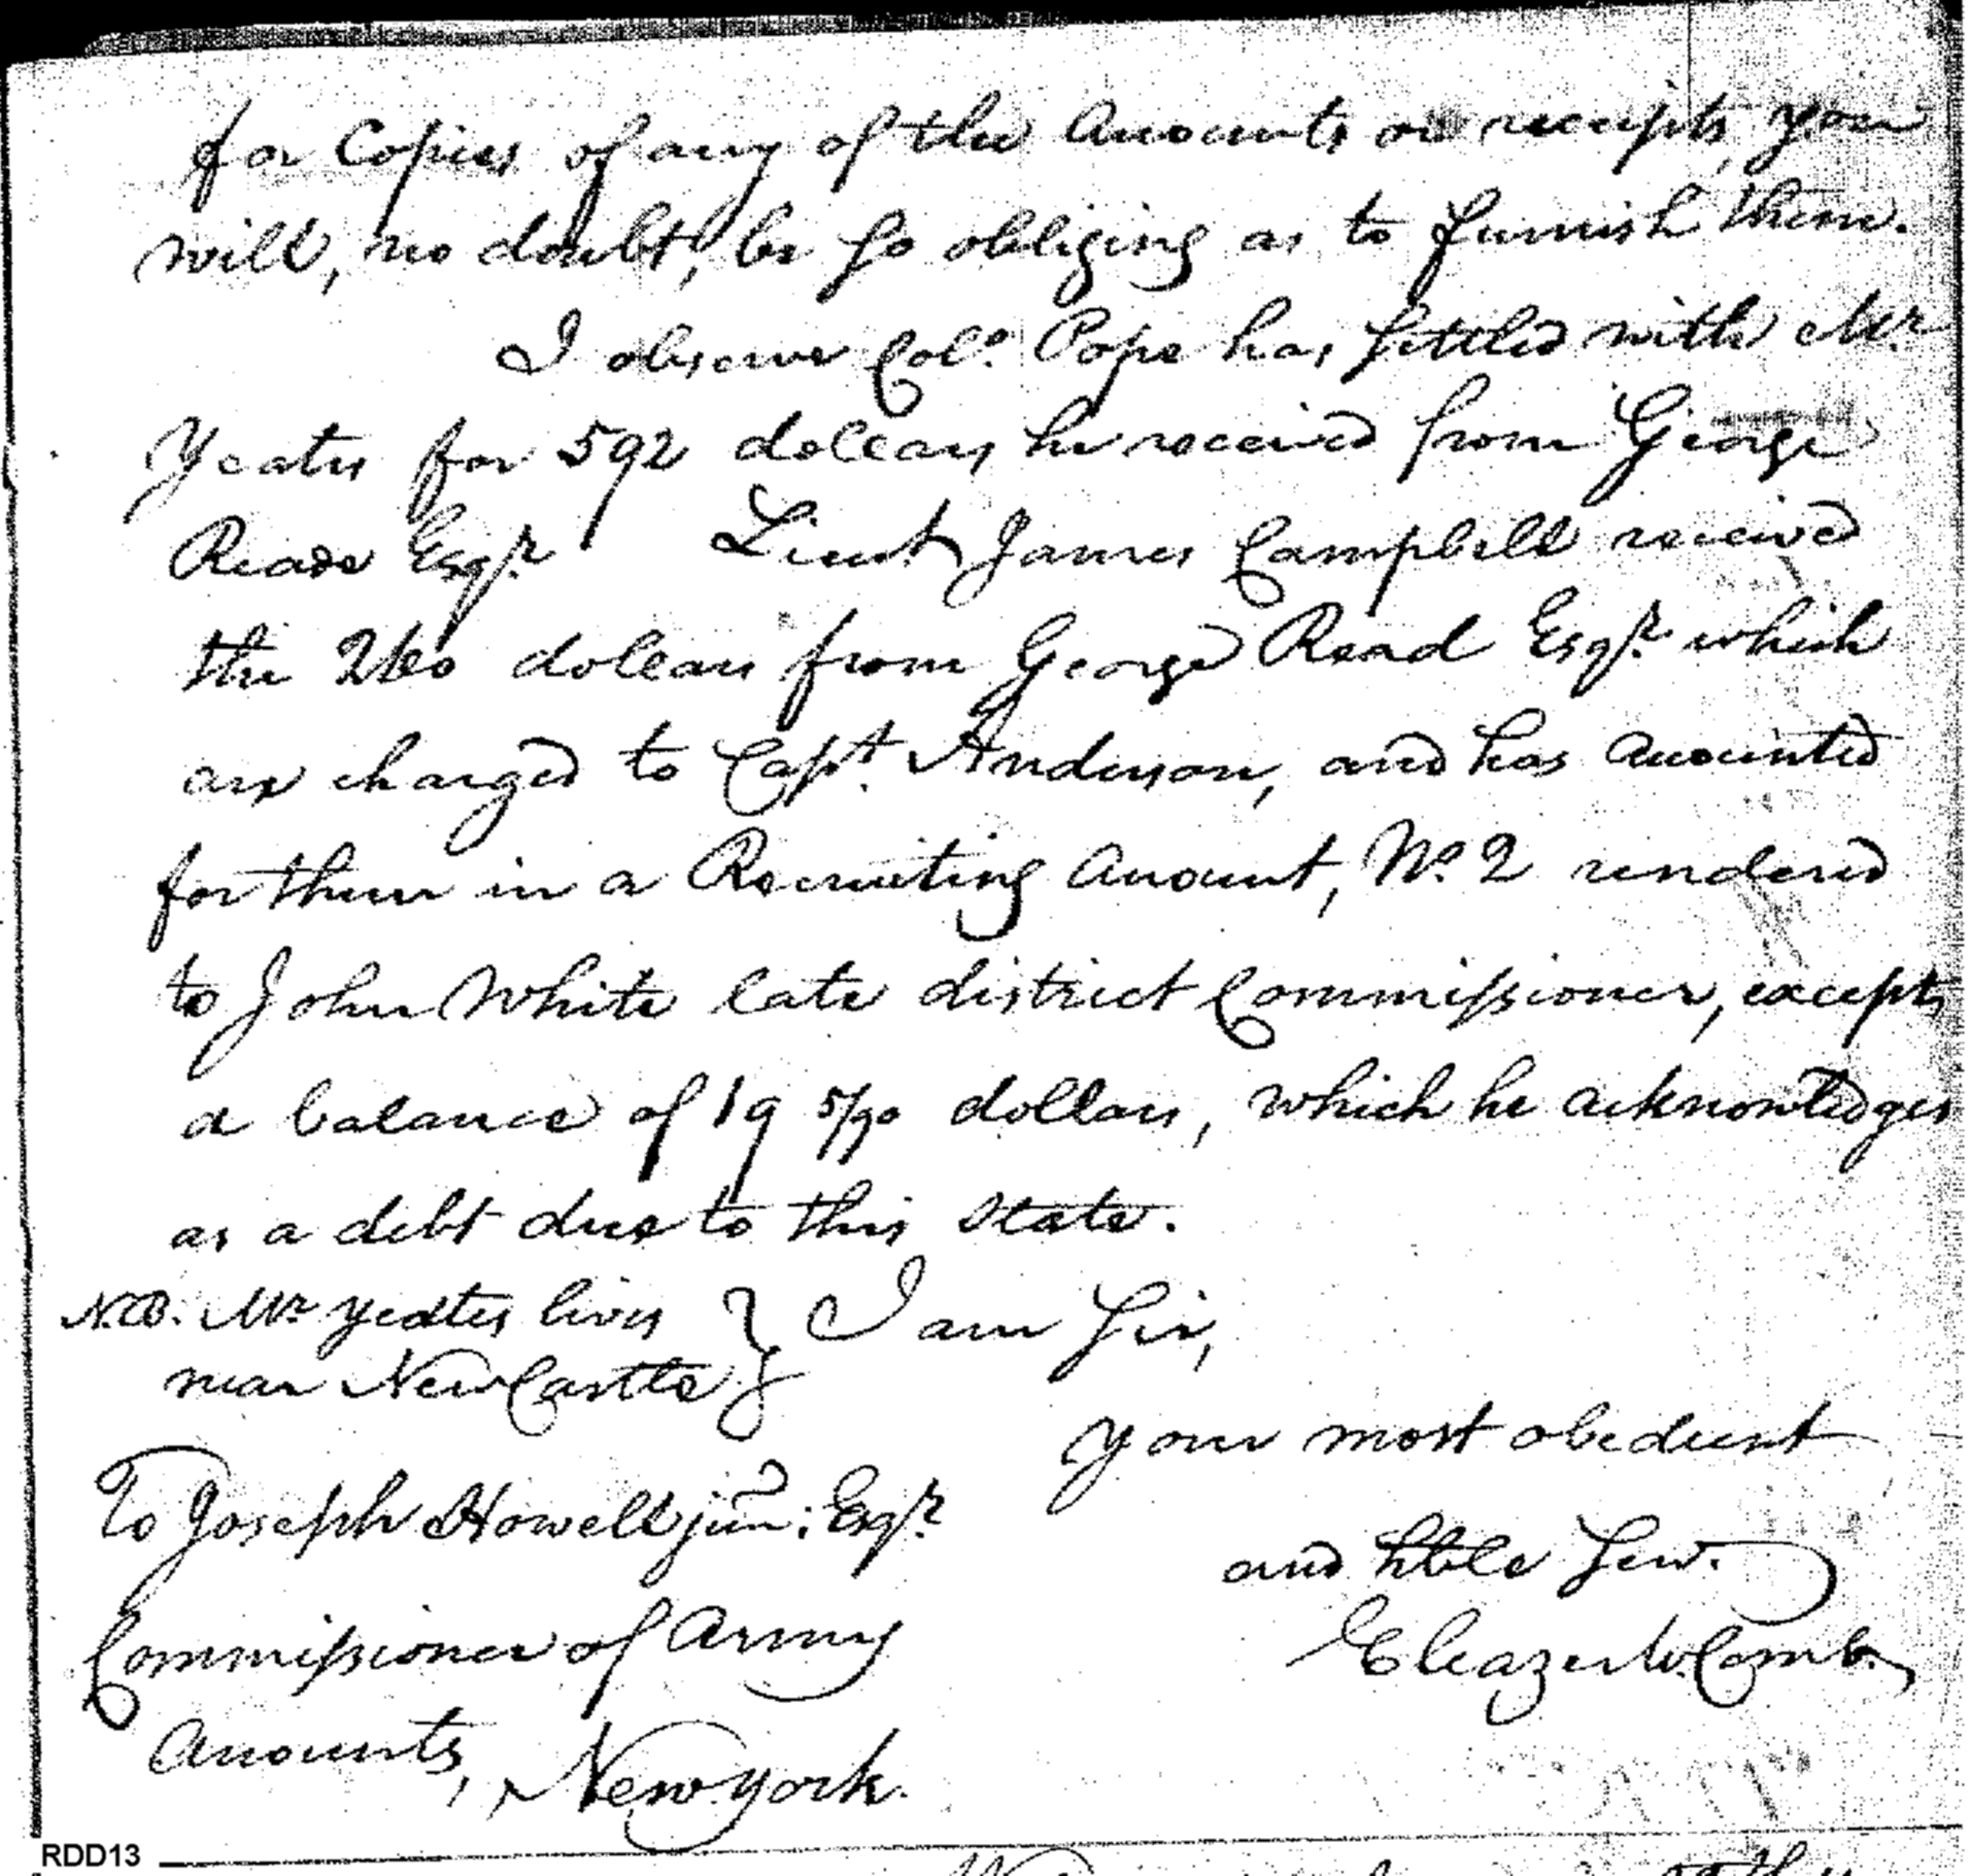 for Copies of any of the Accounts or receipts, you
will, no doubt, be so obliging as to furnish them.
I observe Colo. Pope has settled with Mr.
Yeates for 592 dollars he received from George
Reade Esqr. Lieut James Campbell received
the 260 dollars from George Read Esqr. which
are charged to Capt. Anderson, and has accounted
for them in a Recruiting Account, No. 2 rendered
to John White late district Commissioner, except
a balance of 19 5/90 dollars, which he acknowledges
as a debt due to this State.
N.B. Mr Yeates lives } I am Sir,
near New Castle }
Your most obedient
To Joseph Howell junr: Esqr.
and hble Serv.
Commissioner of Army
Eleazer W. Comb.
Accounts, New York.
RDD13